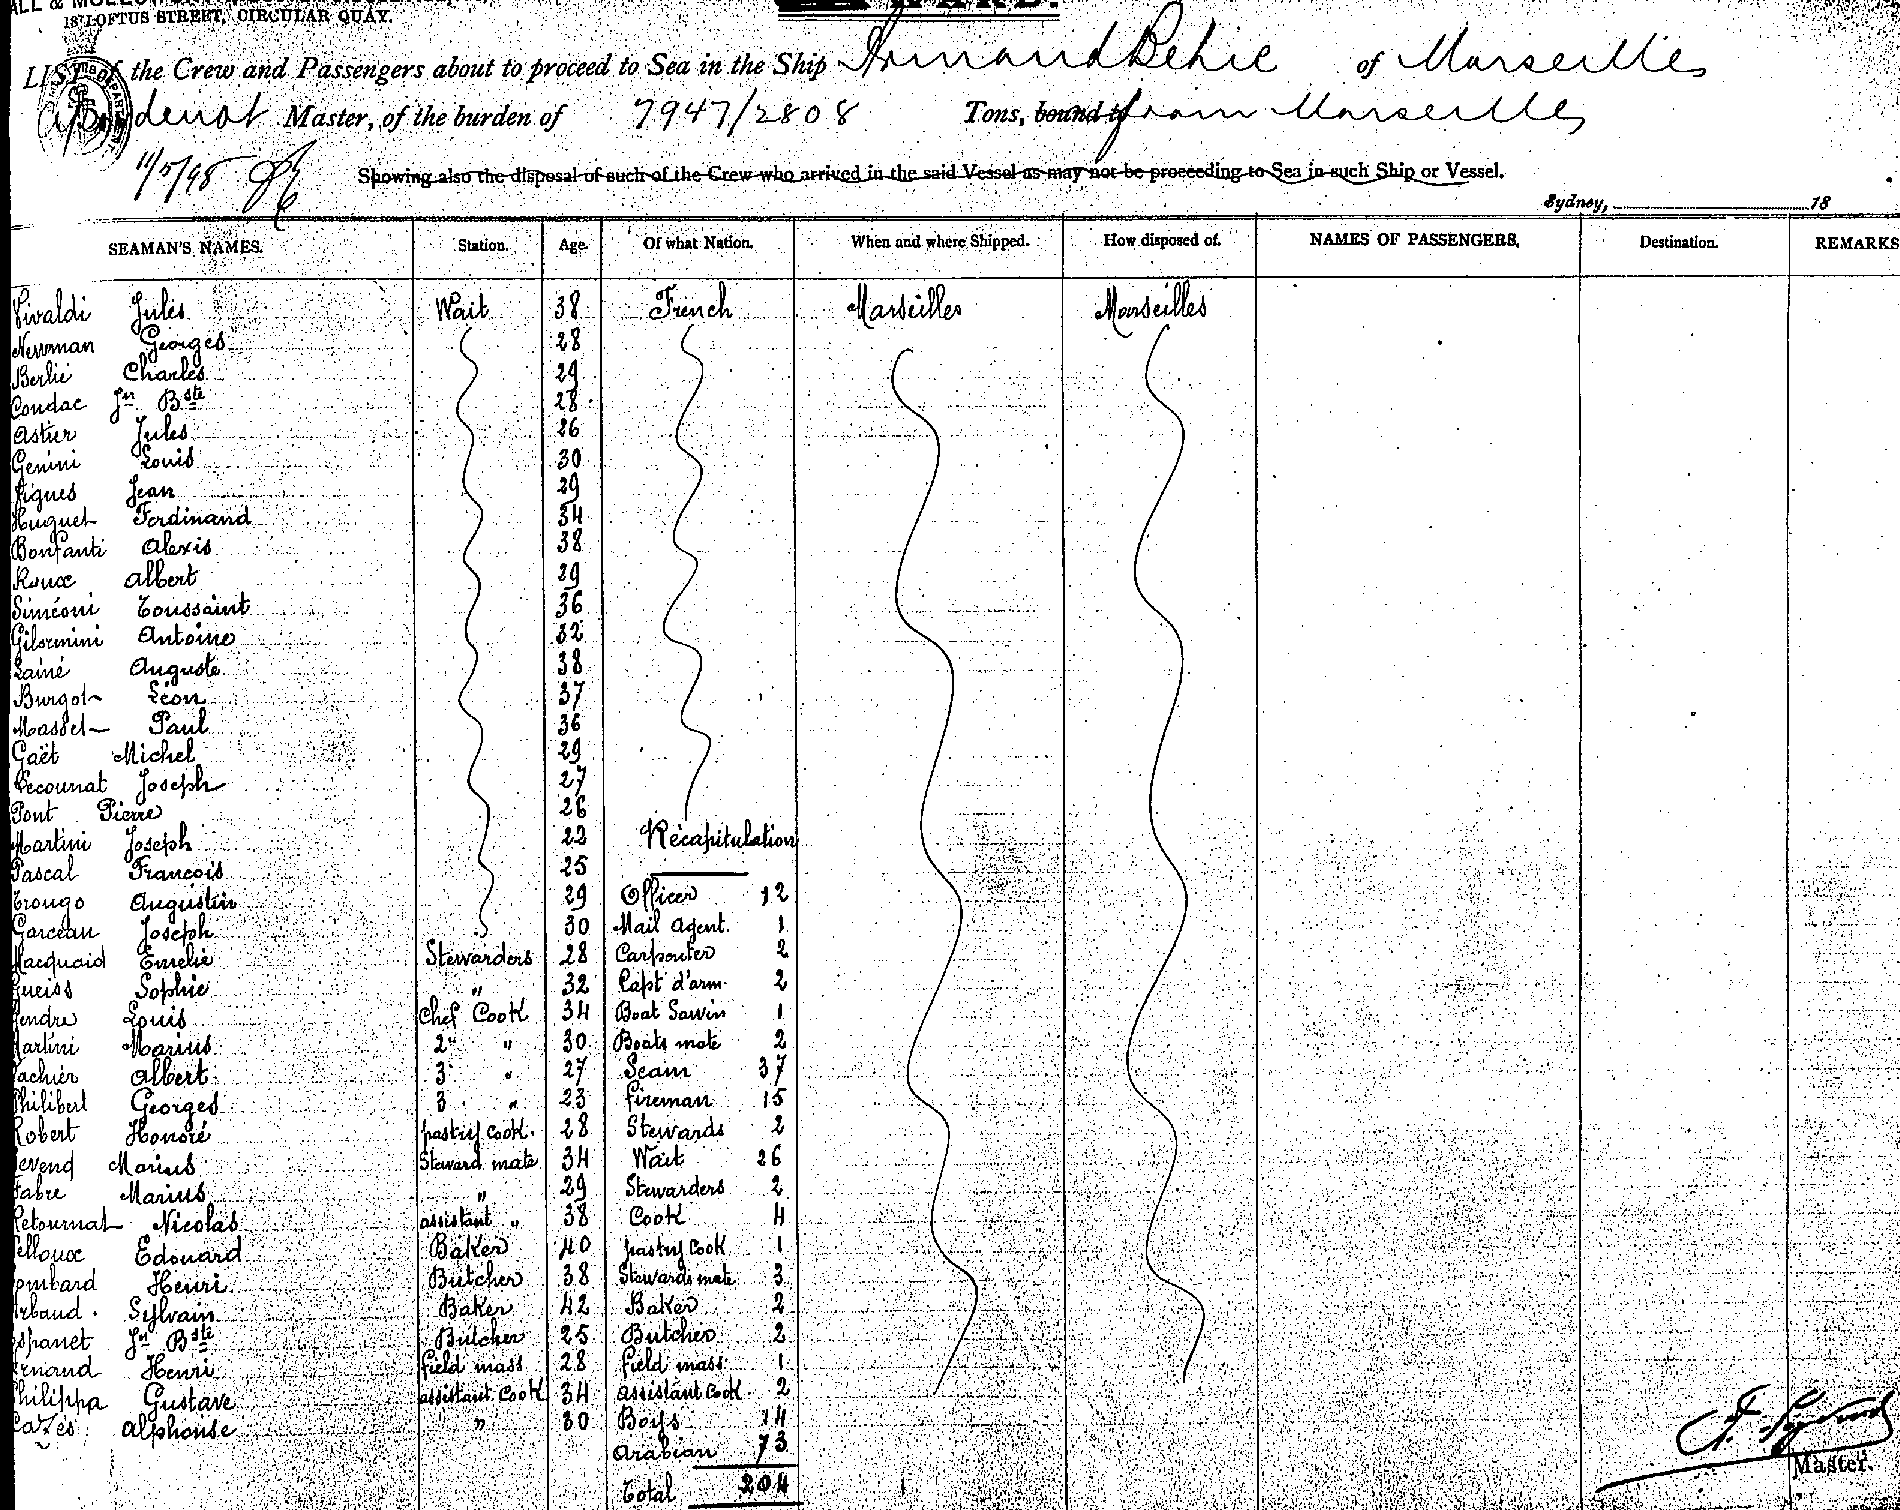 18 LOFTUS STREET, CIRCULAR QUAY.
LIST of the Crew and Passengers about to proceed to Sea in the Ship Armand Behic of Marseilles
Master, of the burden of 7947/2808 Tons, bound to from Marseilles
11/5/98
Showing also the disposal of such of the Crew who arrived in the said Vessel as may not be proceeding to Sea in such Ship or Vessel.
Sydney, 18
SEAMAN'S NAMES. Station. Age. Of what Nation. When and where Shipped. How disposed of. NAMES OF PASSENGERS. Destination. REMARKS
Vivaldi Jules Wait 38 French Marseilles Marseilles
Newman Georges 28
Berlie Charles 29
Condac Jn Bste 28
Astier Jules 26
Genini Louis 30
Vignes Jean 29
Huguet Ferdinand 34
Bonfanti Alexis 38
Roux Albert 29
Siméoni Toussaint 36
Gilormini Antoine 32
Lainé Auguste 38
Burgot Léon 37
Massel Paul 36
Gaët Michel 29
Pecournat Joseph 27
Pont Pierre 26
Martini Joseph 22 Récapitulation
Pascal Francois 25
Trongo Augustin 29 Officer 12
Garcean Joseph 30 Mail Agent. 1
Macquaid Emelie Stewarders 28 Carpenter 2
Gueiss Sophie " 32 Capt d'arm. 2
Louis Chef Cook 34 Boat Sawin 1
Martini Marius 2 " 30 Boats mate 2
Vachier Albert 3 " 27 Seam 37
Philibert Georges 3 " 23 fireman 15
Robert Honoré pastry cook. 28 Stewards 2
Marius Steward mate 34 Wait 26
Fabre Marius " 29 Stewarders 2
Retournat Nicolas assistant " 38 Cook 4
Pelloux Edouard Baker 40 pastry cook 1
Lombard Henri Butcher 38 Stewards mate 3
Arbaud. Sylvain Baker 42 Baker 2
Espanet Jn Bste Butcher 25 Butcher 2
Henri field mass 28 field mass 1
Philippa Gustave assistant cook 34 assistant cook 2
Cazes Alphonse " 30 Boys 14
Arabian 73
Total 204
Master.